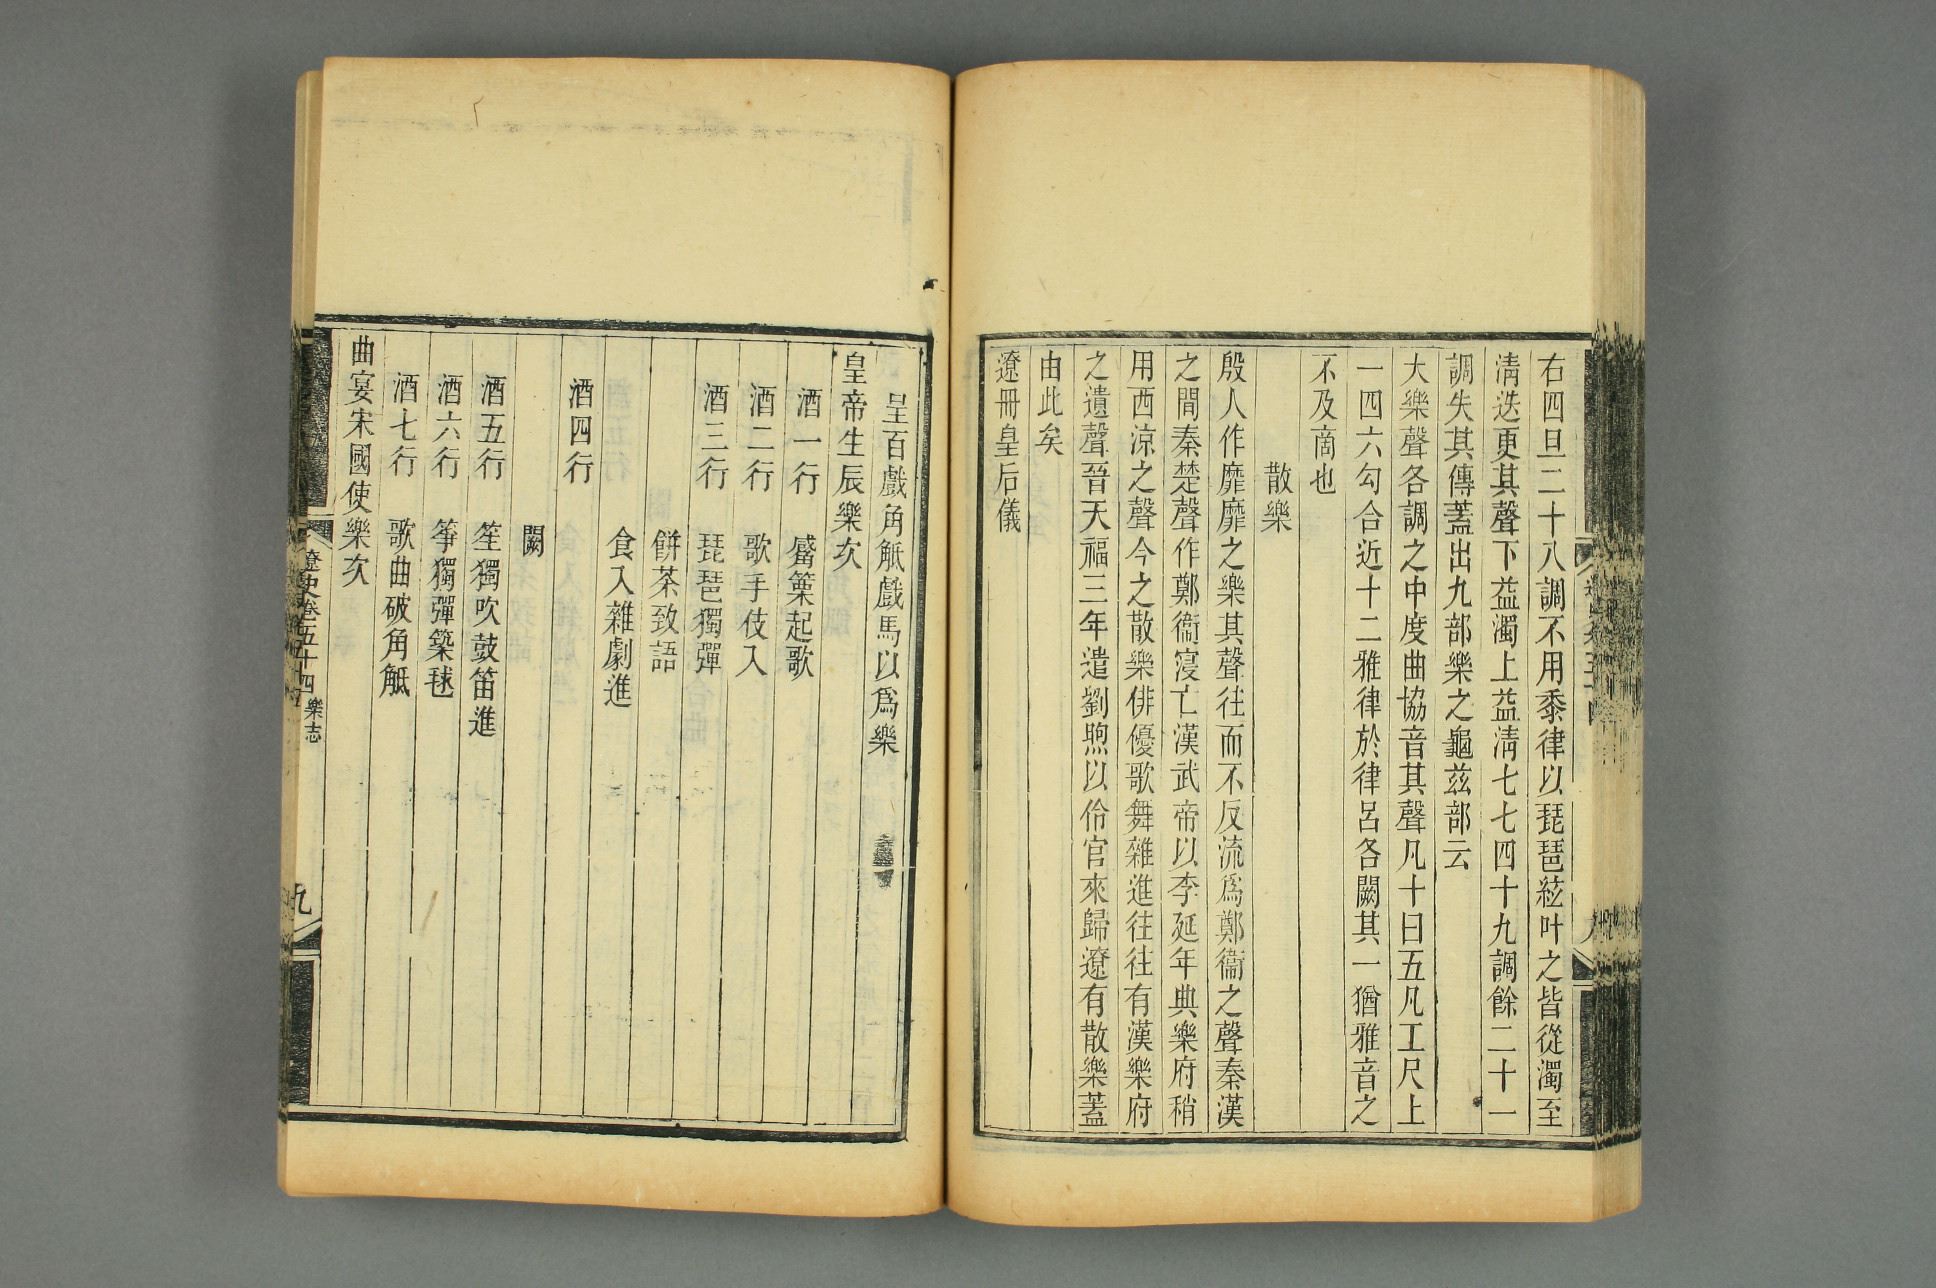 右四旦二十八調不用黍律以琵琶絃叶之皆從濁至
淸迭更其聲下益濁上益淸七七四十九調餘二十一
調失其傳蓋出九部樂之龜茲部云
大樂聲各調之中度曲協音其聲凡十曰五凡工尺上
一四六勾合近十二雅律於律呂各闕其一猶雅音之
不及啇也
散樂
殷人作靡靡之樂其聲往而不反流爲鄭衞之聲秦漢
之間秦楚聲作鄭衞寖亡漢武帝以李延年典樂府稍
用西涼之聲今之散樂俳優歌舞雜進往往有漢樂府
之遺聲晉天福三年遣劉煦以伶官來歸遼有散樂蓋
由此矣
遼冊皇后儀
呈百戲角觝戲馬以爲樂
皇帝生辰樂次
酒一行 觱篥起歌
酒二行 歌手伎入
酒三行 琵琶獨彈
餅茶致語
食入雜劇進
酒四行
闕
酒五行 笙獨吹鼓笛進
酒六行 箏獨彈築毬
酒七行 歌曲破角觝
曲宴宋國使樂次
遼史卷五十四 樂志
九